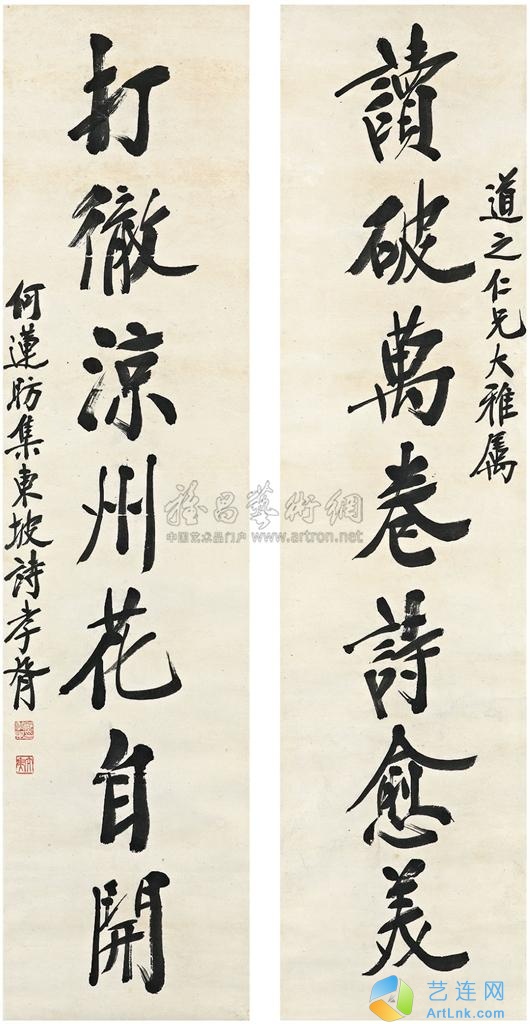 道之仁兄大雅属
讀破萬卷詩愈美
打徹涼州花自開
何蓮舫集東坡詩孝胥
雅昌藝術網
中国艺术品门户 www.artron.net
艺连网
ArtLnk.com